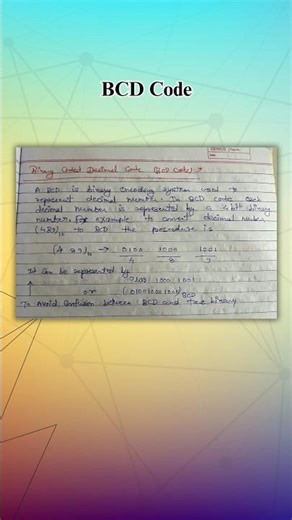 BCD Code
Binary Coded Decimal Code (BCD Code) →
A BCD is binary encoding system used to
represent decimal number. In BCD code each
decimal number is represented by a 4 bit binary
number. For example to convert decimal number
(489)₁₀ to BCD the procedure is
(4 89)₁₀ → 0100 1000 1001
4 8 9
It can be represented by
0100 1000 1001
or (010010001001)BCD
To Avoid Confusion between BCD and true binary